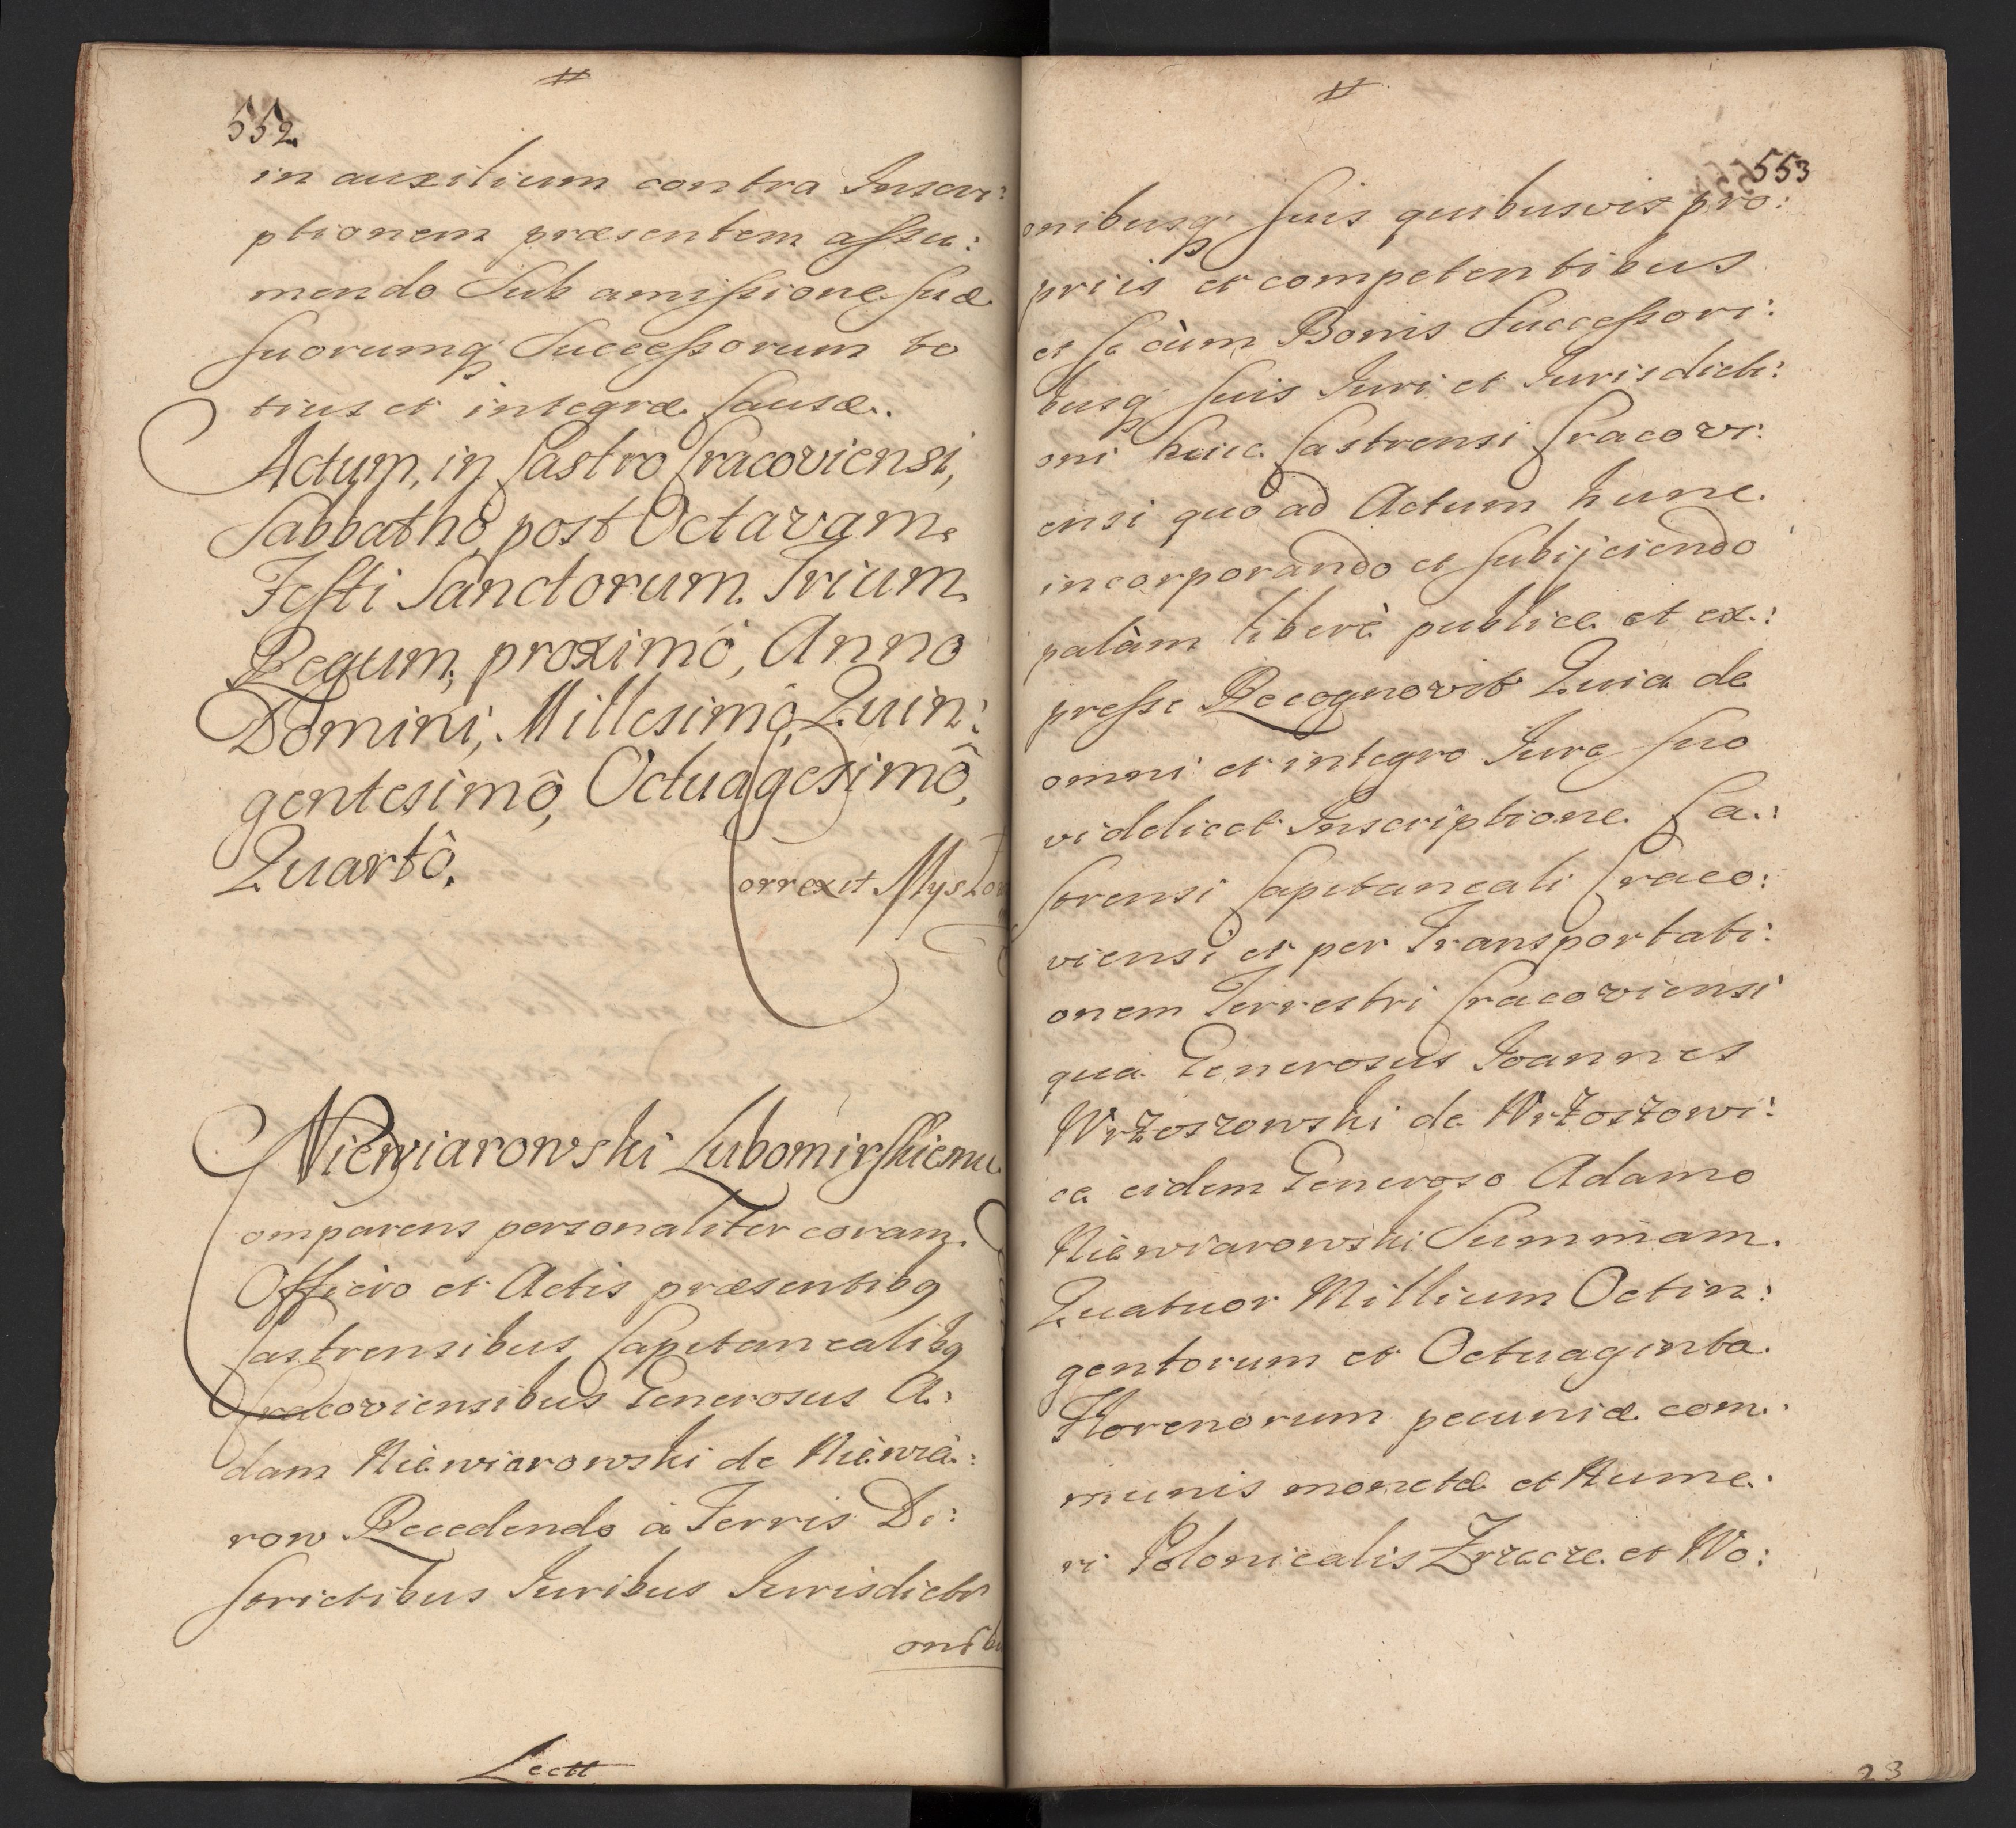 #
552.
in auxilium contra Inscri:
ptionem præsentem assu:
mendo Sub amissione suæ
suorumq Successorum to
tius et integræ Causæ.
Actum, in Castro Cracoviensi,
Sabbatho post Octavam
Festi Sanctorum Trium
Regum, proximô, Anno
Domini, Millesimô, Quin:
gentesimô, Octuagesimô,
Quartô.
Correxit
Niewiarowski Lubomirskiemu
Comparens personaliter coram
Officio et Actis præsentibq
Castrensibus Capitanealibq
Cracoviensibus Generosus A:
dam Niewiarowski de Niewia:
row Recedendo à Terris Di:
strictibus Iuribus Iurisdicti
onib
Lectt
#
553
onibusq suis quibusvis pro:
priis et competentibus
et se cùm Bonis Successori:
busq suis Iuri et Iurisdicti:
oni huic Castrensi Cracovi:
ensi quo ad Actum hunc
incorporando et subijciendo
palàm liberè publice et ex:
presse Recognovit Quia de
omni et integro Iure suo
videlicet Inscriptione Ca:
strensi Capitaneali Craco:
viensi et per Transportati:
onem Terrestri Cracoviensi
qua Generosus Ioannes
Wrzoszowski de Wrzoszowi:
ce eidem Generoso Adamo
Niewiarowski Summam
Quatuor Millium Octin:
gentorum et Octuaginta
Florenorum pecuniæ com:
munis monetæ et Nume:
ri Polonicalis Zrzecze et Wo:
23